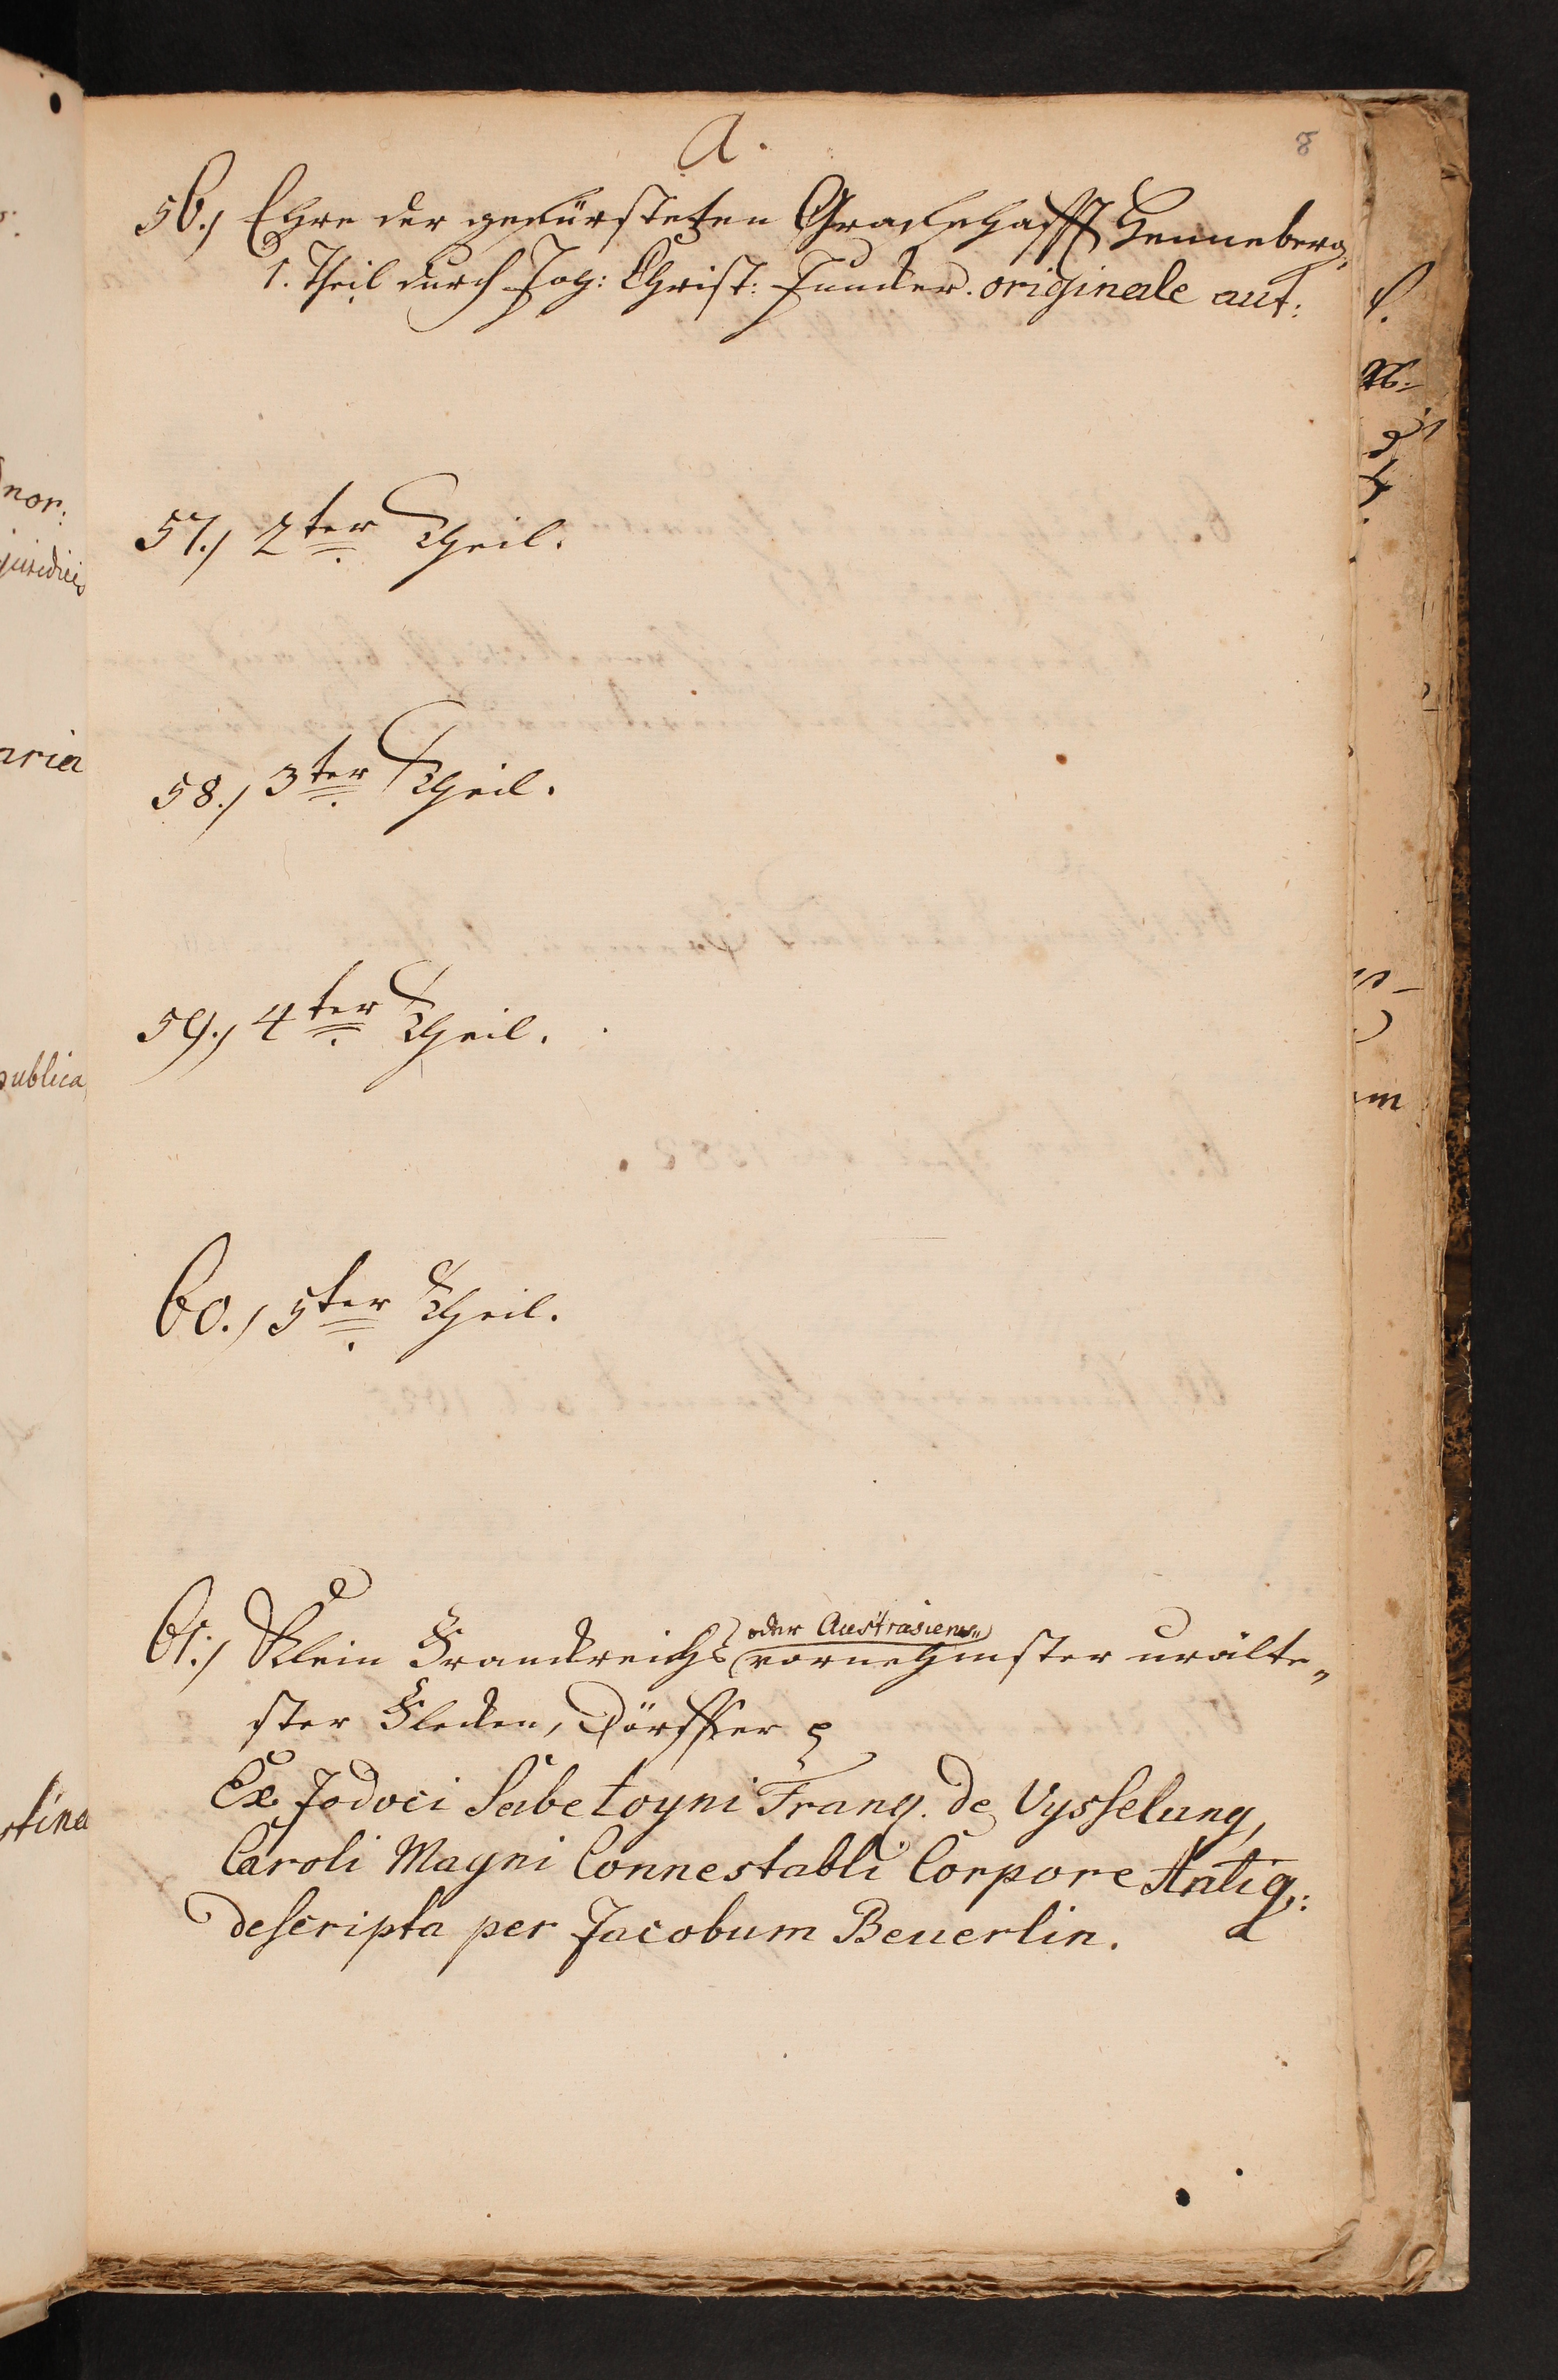 A.
8
56.) Ehre der gefürsteten Graffschafft Henneberg,
1. Theil durch Joh: Christ: Juncker. originale aut:
57.) 2ter Theil.
58.) 3ter Theil.
59.) 4ter Theil.
60.) 5ter Theil.
61.) Klein Franckreichs (oder Austrasiens) vornehmster urälte„
ster Flecken, Dörffer
Ex Jodoci Sabetoyni Franq. de Vysselung,
Caroli Magni Connestabli Corpore Antiq:
descripta per Jacobum Beuerlin.
nor:
juridici
aria
publica
stina